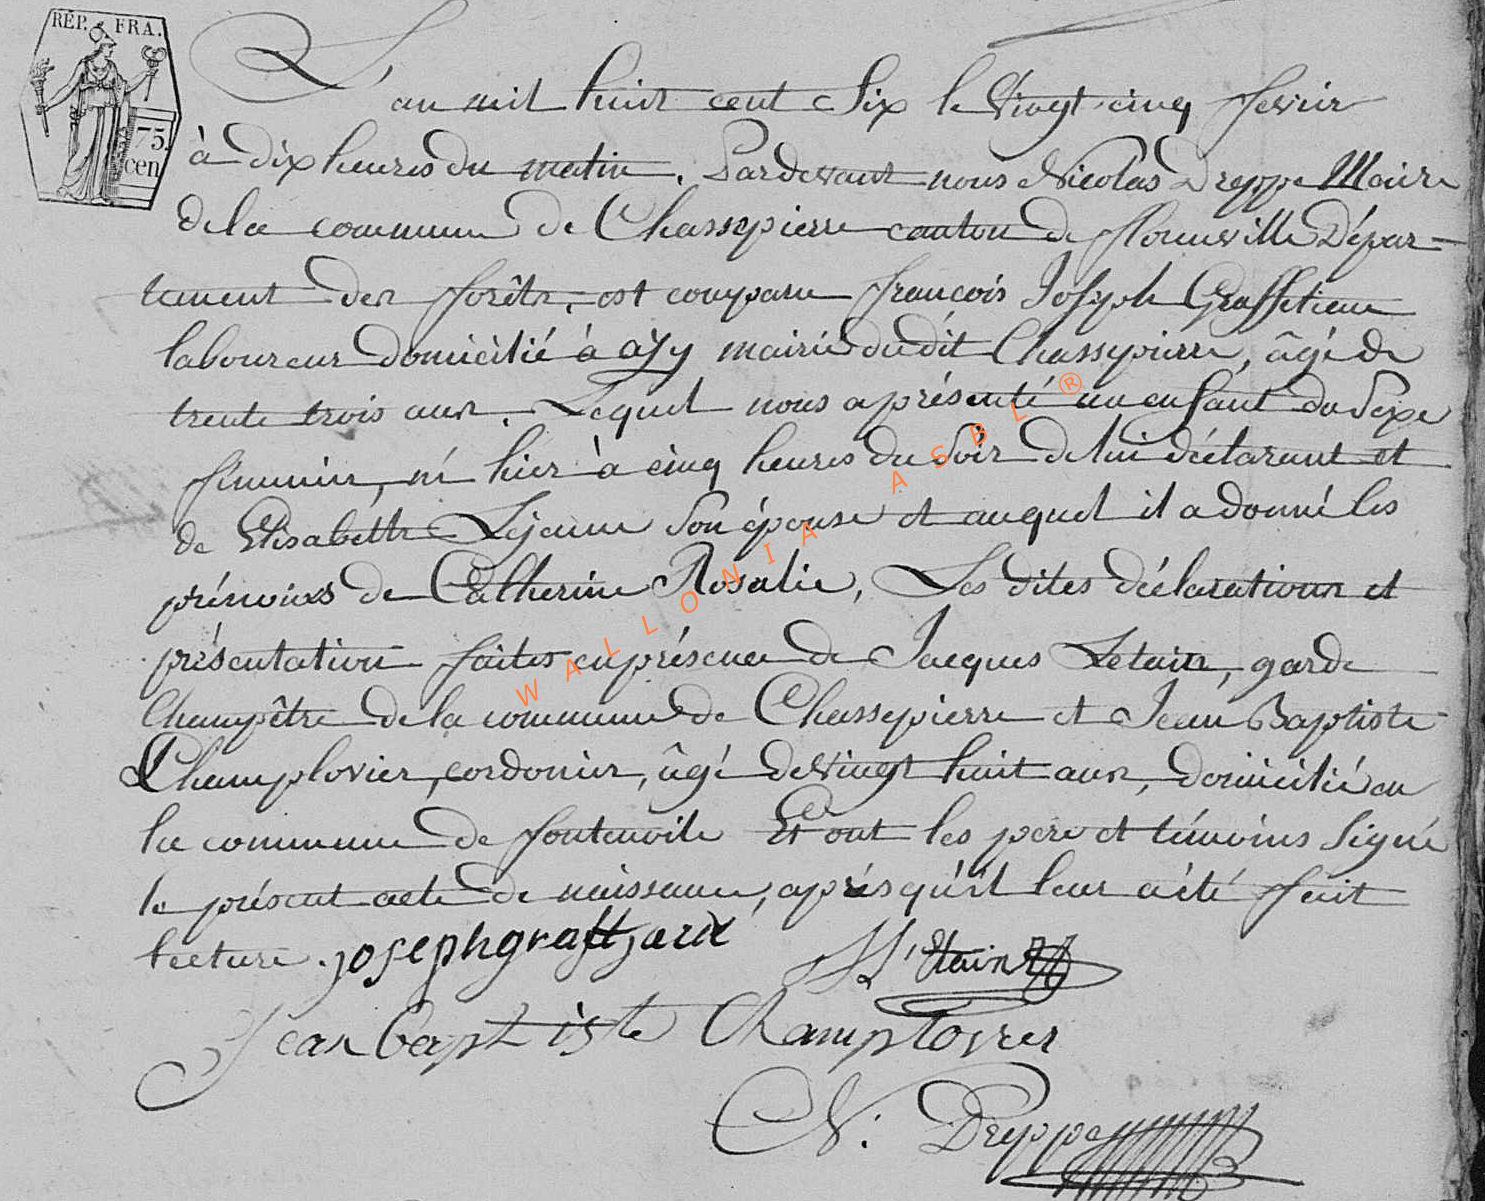 RÉP. FRA.
75.
cen
L'an mil huit cent Six le Vingt cinq fevrir
à dix heures du matin. Pardevant nous Nicolas Dreppe Maire
de la commune de Chassepierre canton de florenville Dépar-
tement des forêts, est comparu françois Joseph
laboureur domicilié à azy mairie du dit Chassepierre, âgé de
trente trois ans. Lequel nous a présenté un enfant du Sexe
féminin, né hier à cinq heures du Soir de lui déclarant et
de Elisabeth Lejeune Son épouse et auquel il a donné les
prénoms de Catherine Rosalie, Les dites déclarations et
présentation faites en présence de Jacques Letain, garde
Champêtre de la commune de Chassepierre et Jean Baptiste
Champlovier, cordonier, âgé de vingt huit ans, domicilié en
la commune de fontenoile Et ont les pere et témoins Signé
le présent acte de naissance, après qu'il leur a été fait
lecture. joseph
Jean Baptiste Champlovier
N. Dreppe
WALLONIA ASBL ®